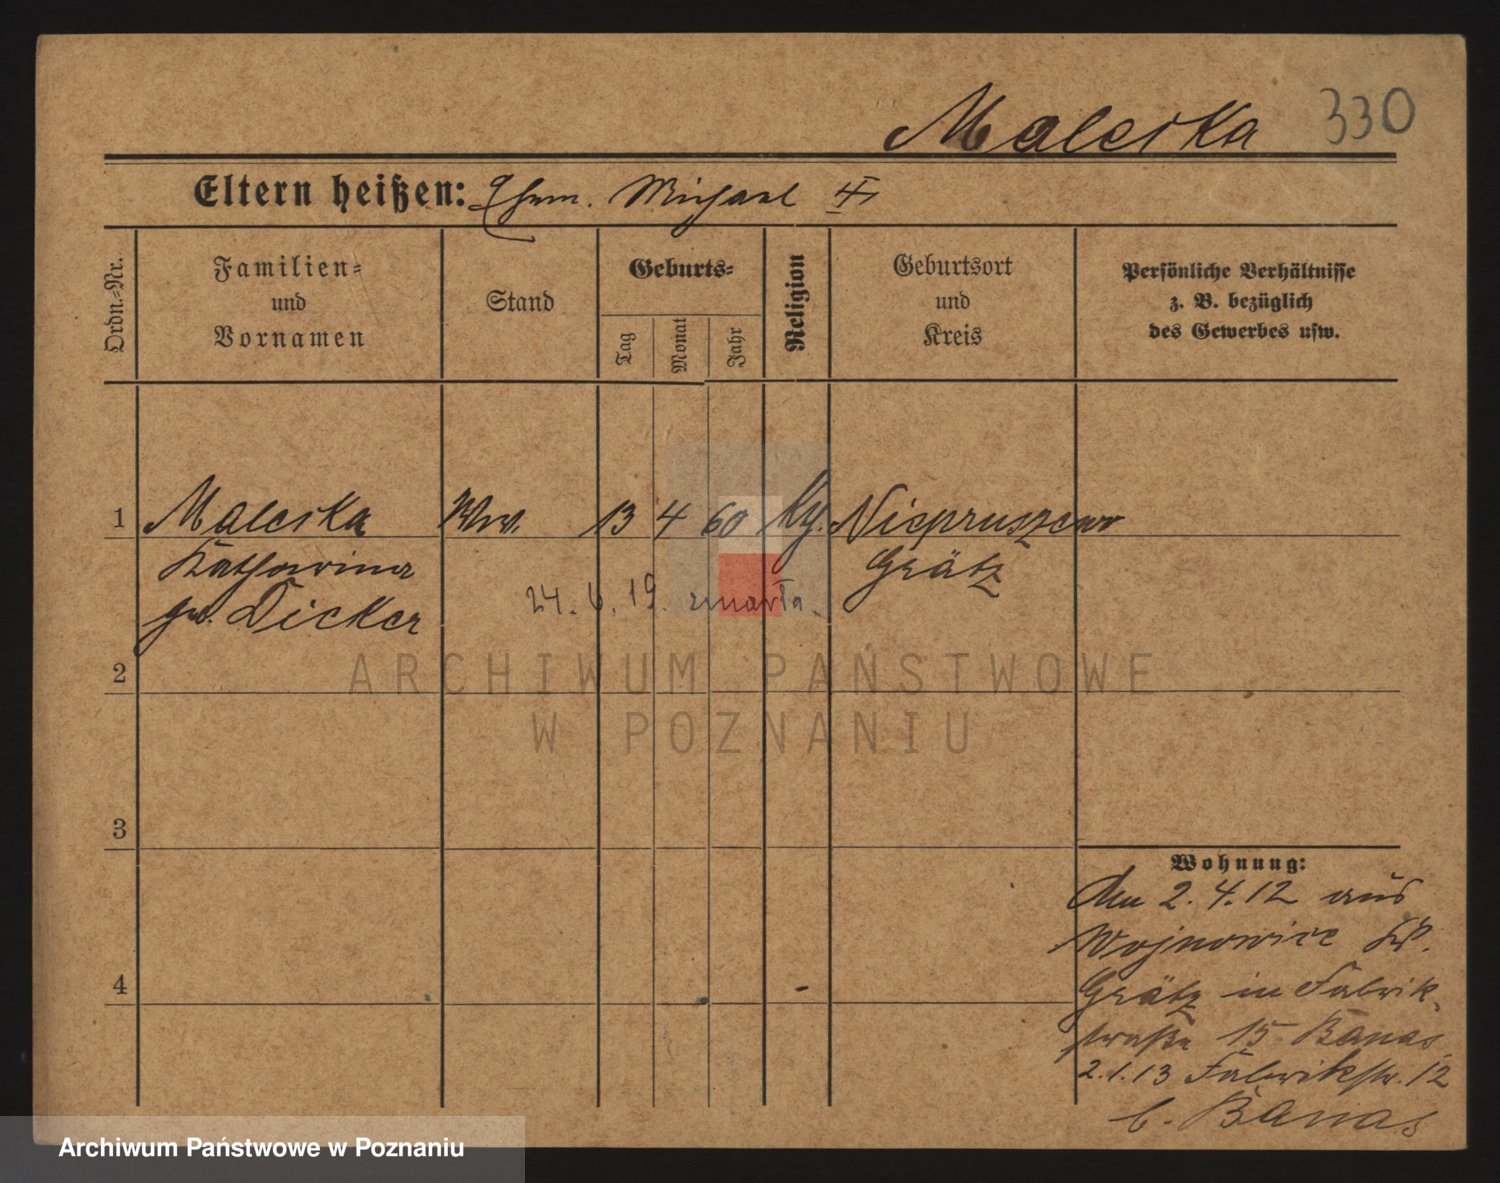 Maleska 330
Eltern heißen: Ehem. Michael
Ordn.=Nr.
Familien=
und
Vornamen
Stand
Geburts=
Tag
Monat
Jahr
Religion
Geburtsort
und
Kreis
Persönliche Verhältnisse
z. B. bezüglich
des Gewerbes usw.
1 Maleska Ww. 13 4 60 Niepruszewo
Katharina Grätz
geb. Dicker 24. 6. 19. zmarła.
2
ARCHIWUM PAŃSTWOWE
W POZNANIU
3
Wohnung:
2. 4. 12 aus
Wojnowice
4
Grätz in Fabrik-
straße 15 Banas
2. 1. 13 Fabrikstr. 12
b. Banas
Archiwum Państwowe w Poznaniu